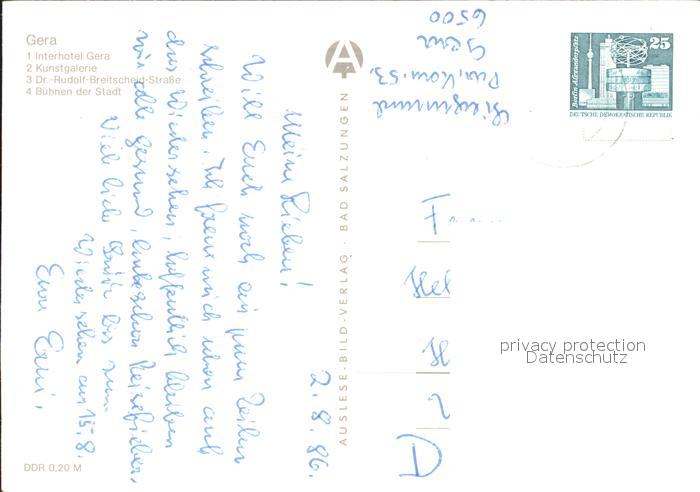 Gera
1 Interhotel Gera
2 Kunstgalerie
3 Dr.-Rudolf-Breitscheid-Straße
4 Bühnen der Stadt
DDR 0,20 M
AUSLESE-BILD-VERLAG · BAD SALZUNGEN
2.8.86.
Meine Lieben!
Will Euch noch ein paar Zeilen
schreiben. Ich freue mich schon auf
das Wiedersehen, hoffentlich bleiben
wir alle gesund, habe schon Reisefieber,
Viel liebe Grüße bis zum
Wiedersehen am 15.8.
Eure Erni.
53.
Gera
6500
Berlin Alexanderplatz
25
DEUTSCHE DEMOKRATISCHE REPUBLIK
F
Hel
H
2
A
privacy protection
Datenschutz